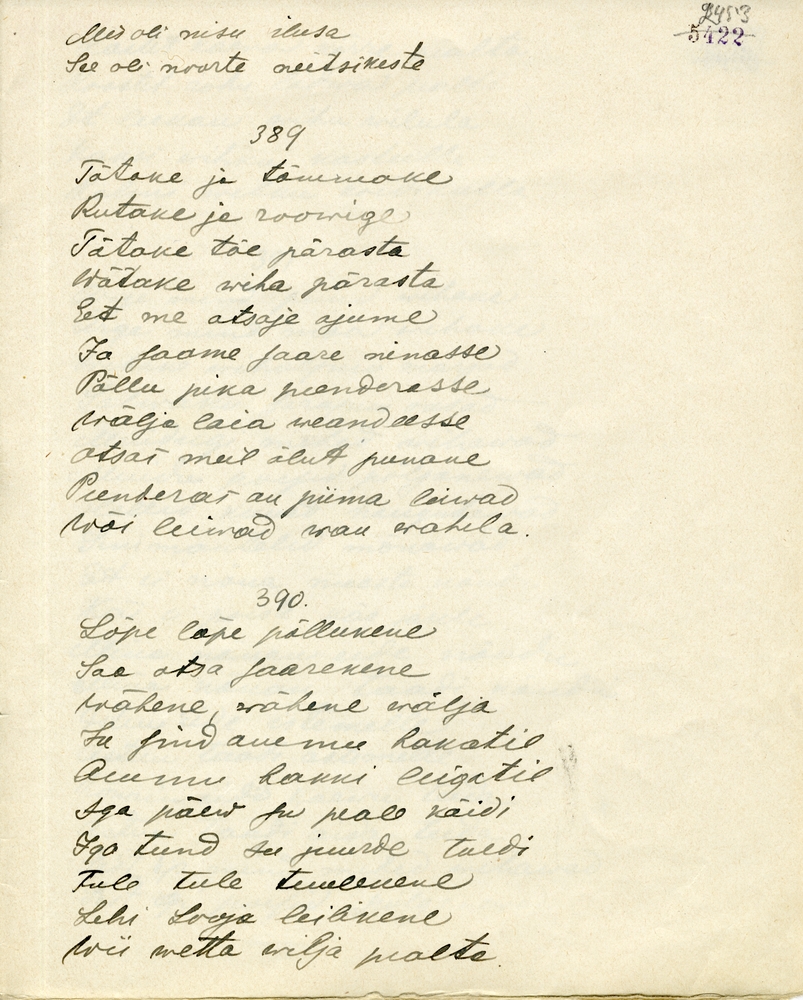 8453
5422
Mis oli nisu ilusa
See oli noorte neitsikeste
389
Tõtake ja tõmmake
Rutake ja roowige
Tõtake töe pärasta
Wõtake wiha pärasta
Et me otsaje ajume
Ja saame saare ninasse
Põllu pika peenderasse
Wälja laia weandesse
Otsas meil õlut punane
Peenderas au piima leiwad
Wõi leiwad wau wahela.
390.
Lõpe lõpe põllukene
Saa otsa saarekene
Wähene, wähene wälja
Ju sind auemu hakatil
Auemu hakki leigatil
Iga päew su peale käidi
Iga tund su juurde tuldi
Tule tule tuulekene
Lehi Looja leilikene
Wii wetta wilja pealta